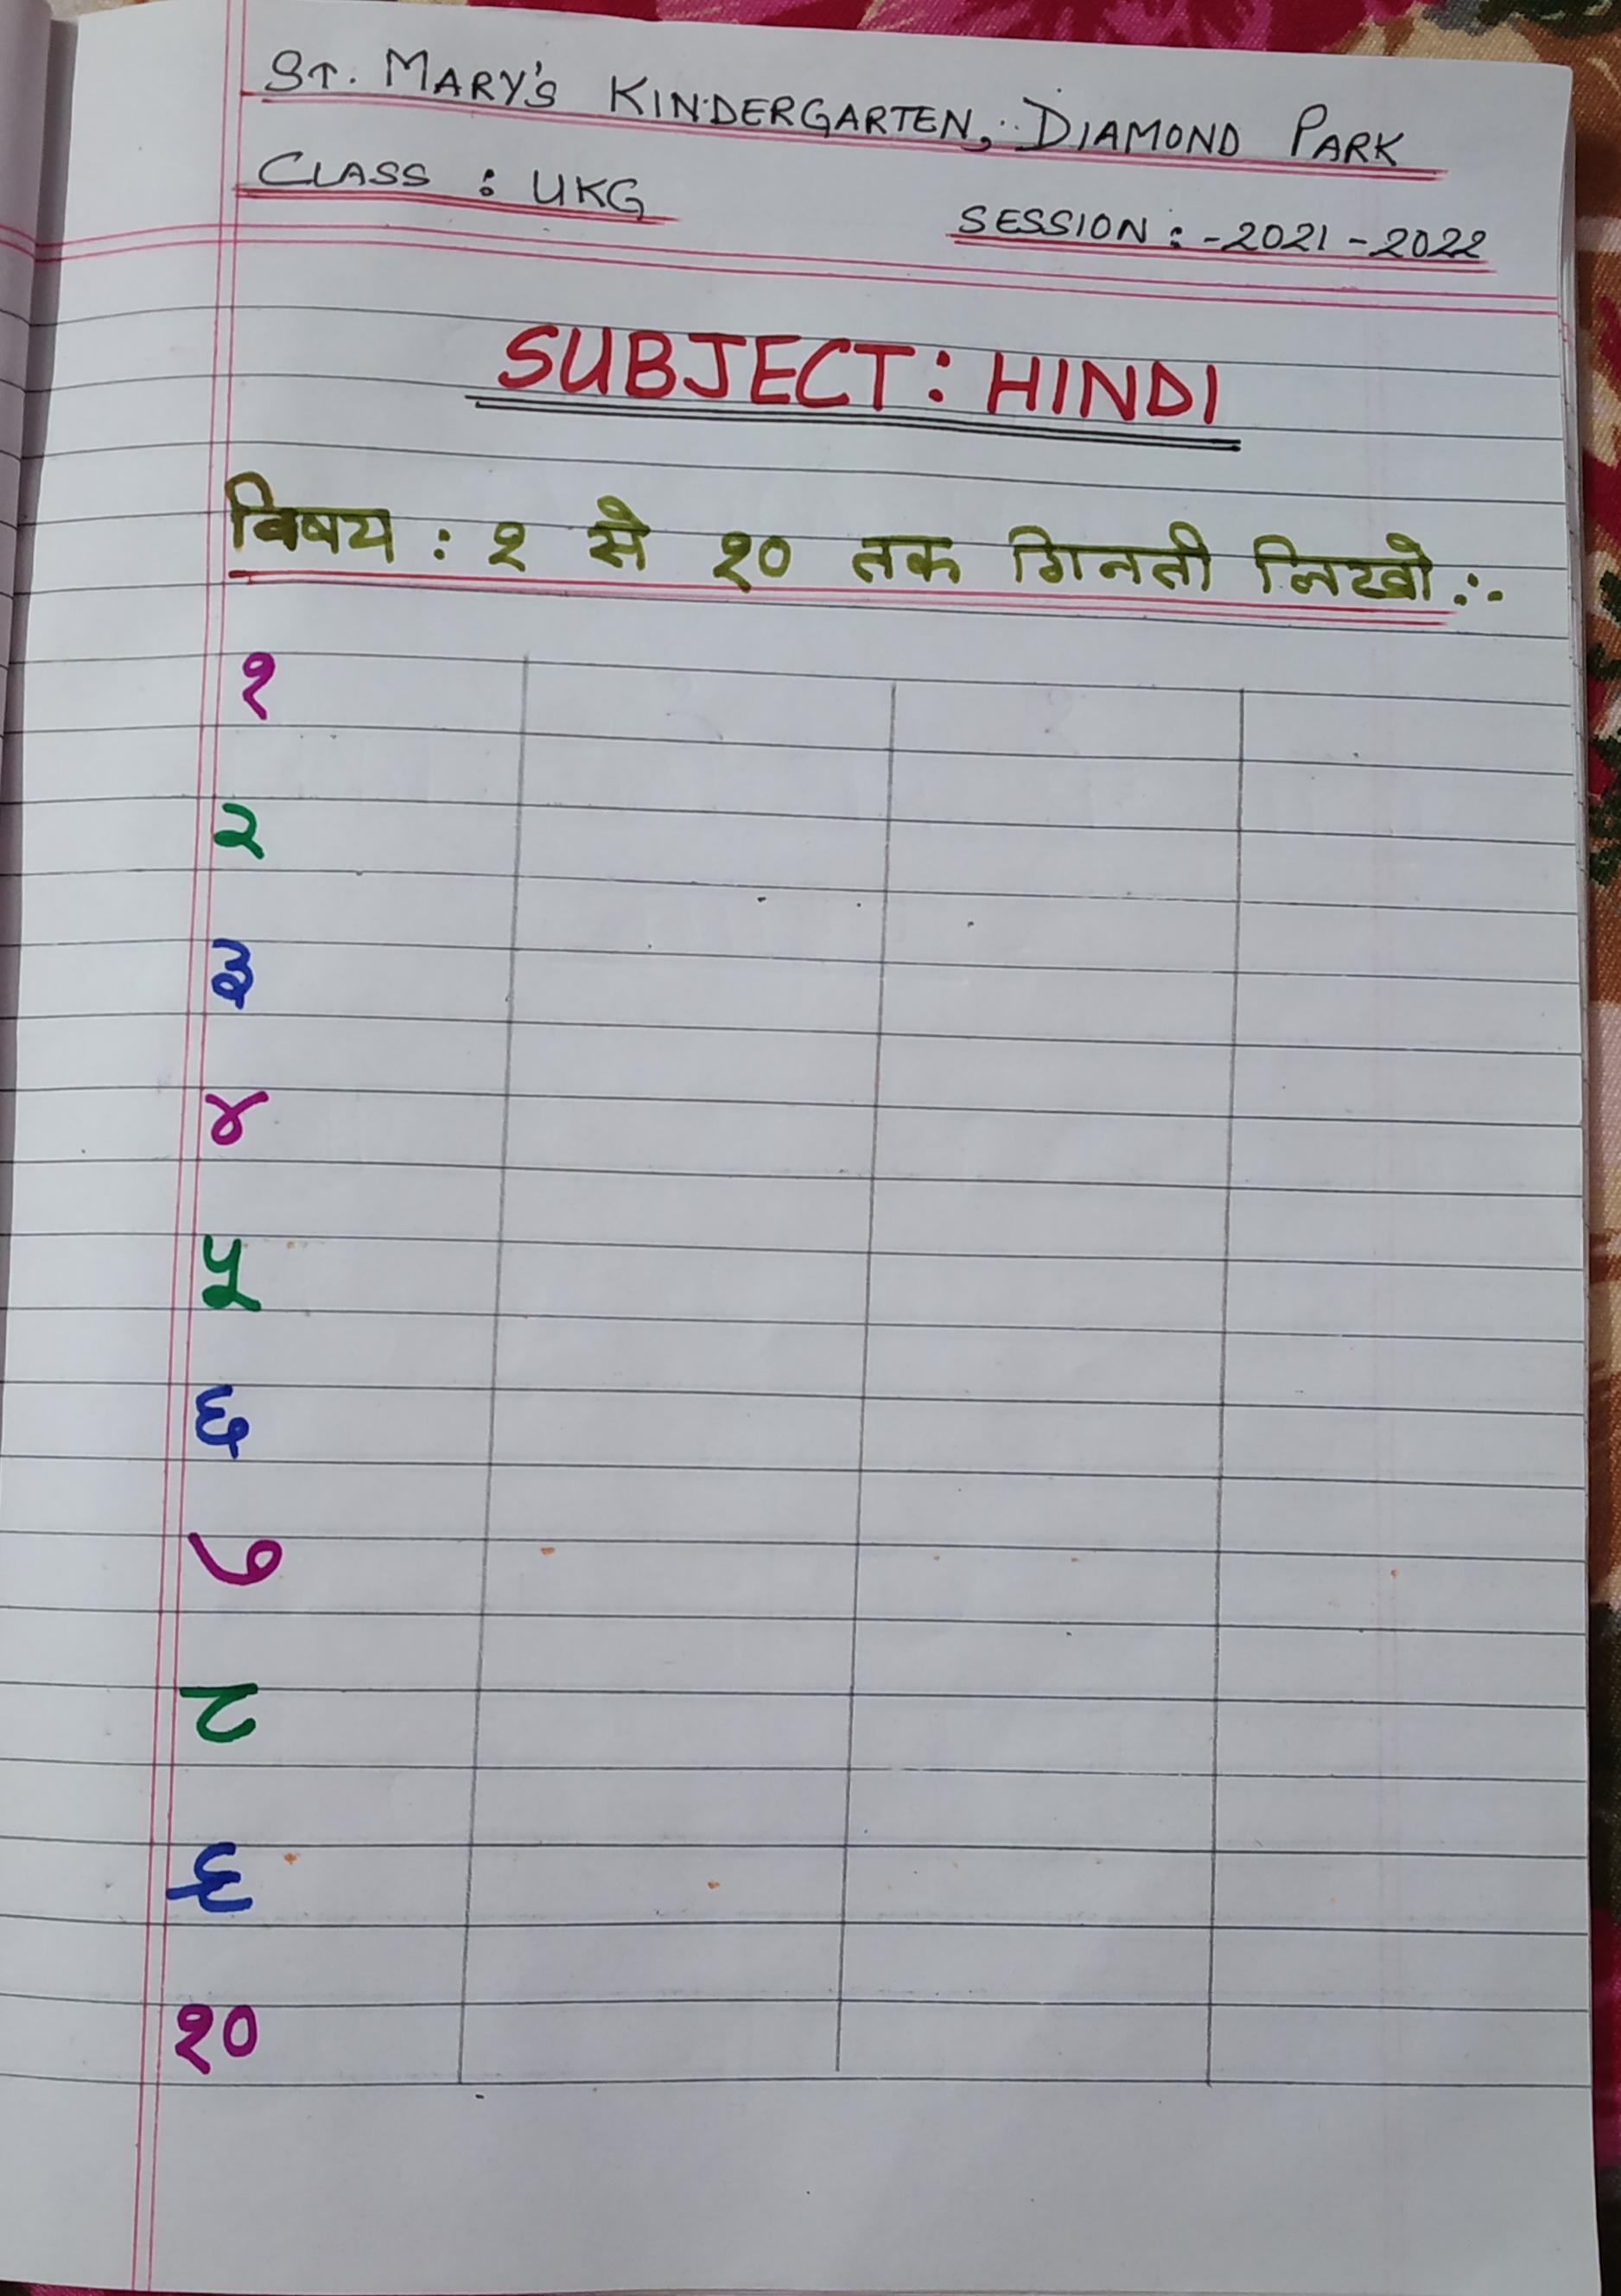 ST. MARY'S KINDERGARTEN, DIAMOND PARK
CLASS : UKG
SESSION :-2021-2022
SUBJECT: HINDI
विषय : १ से १० तक गिनती लिखो :-
१
२
३
४
५
६
७
८
९
१०